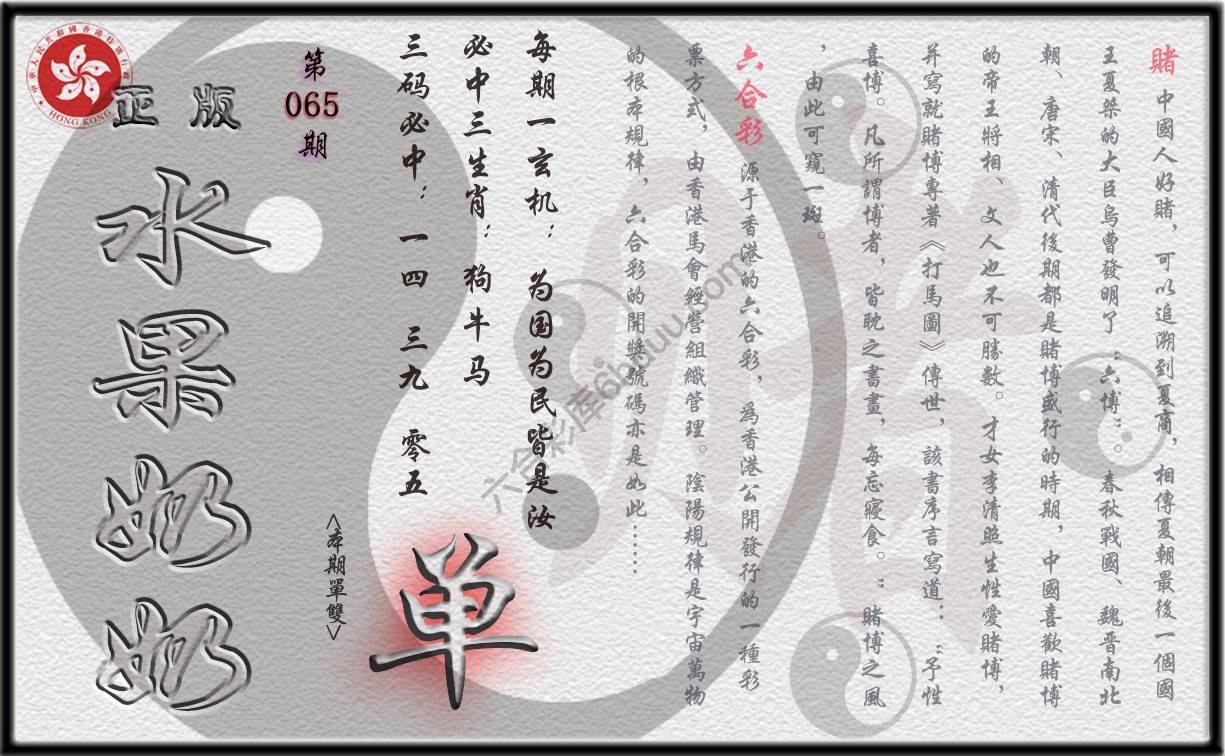 賭 中國人好賭，可以追溯到夏商，相傳夏朝最後一個國
王夏桀的大臣烏曹發明了“六博”。春秋戰國、魏晋南北
朝、唐宋、清代後期都是賭博盛行的時期，中國喜歡賭博
的帝王將相、文人也不可勝數。才女李清照生性愛賭博，
并寫就賭博專著《打馬圖》傳世，該書序言寫道：“予性
喜博。凡所謂博者，皆耽之書畫，每忘寢食。”賭博之風
，由此可窺一斑。
六合彩 源于香港的六合彩，爲香港公開發行的一種彩
票方式，由香港馬會經營組織管理。陰陽規律是宇宙萬物
的根本規律，六合彩的開獎號碼亦是如此……
每期一玄机：为国为民皆是汝
必中三生肖：狗牛马
三码必中：一四 三九 零五
单
<本期單雙>
第
065
期
正版
水果奶奶
中華人民共和國香港特別行政區
HONG KONG
六合彩库6hduu.com